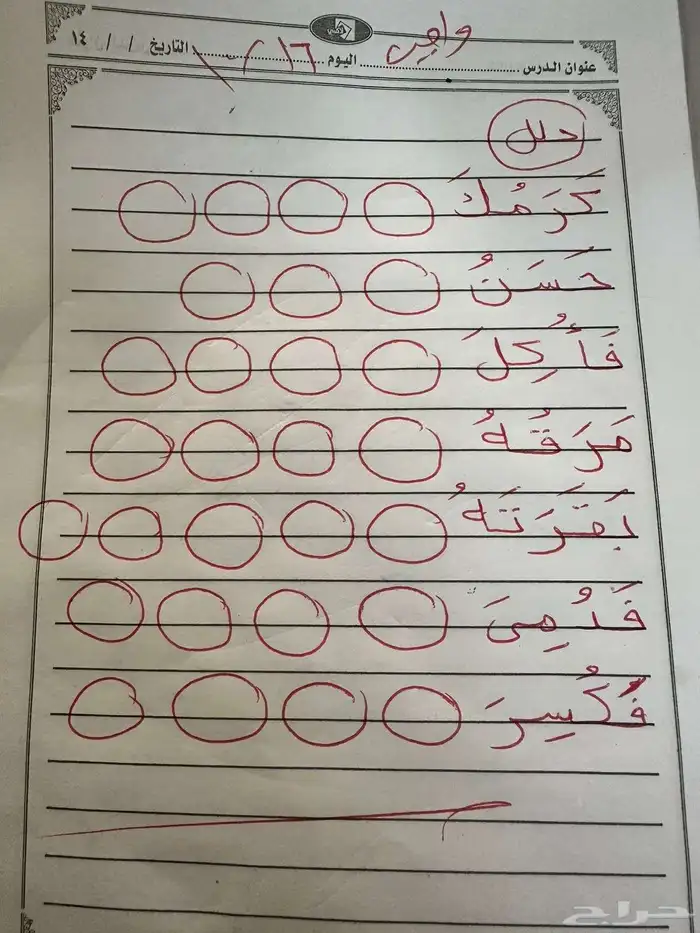 واجب
عنوان الدرس ........................ اليوم ........................ التاريخ / / ١٤
١٦ / ١
حلل
كَرَمُكَ
حَسَنُ
فَأُكِلَ
مَرَقُهُ
بَقَرَتَهُ
قَدُمِىَ
فَكُسِرَ
حراج